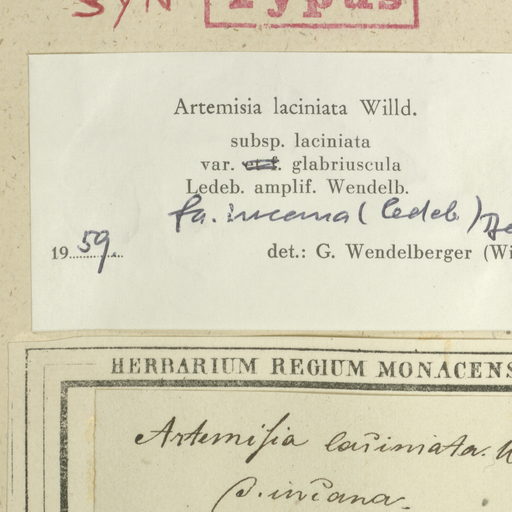 SYN Typus
Artemisia laciniata Willd.
subsp. laciniata
var. glabriuscula
Ledeb. amplif. Wendelb.
fa. incana (Ledeb.)
19 59
det.: G. Wendelberger (Wi
HERBARIUM REGIUM MONACENS
Artemisia laciniata. W
β. incana.